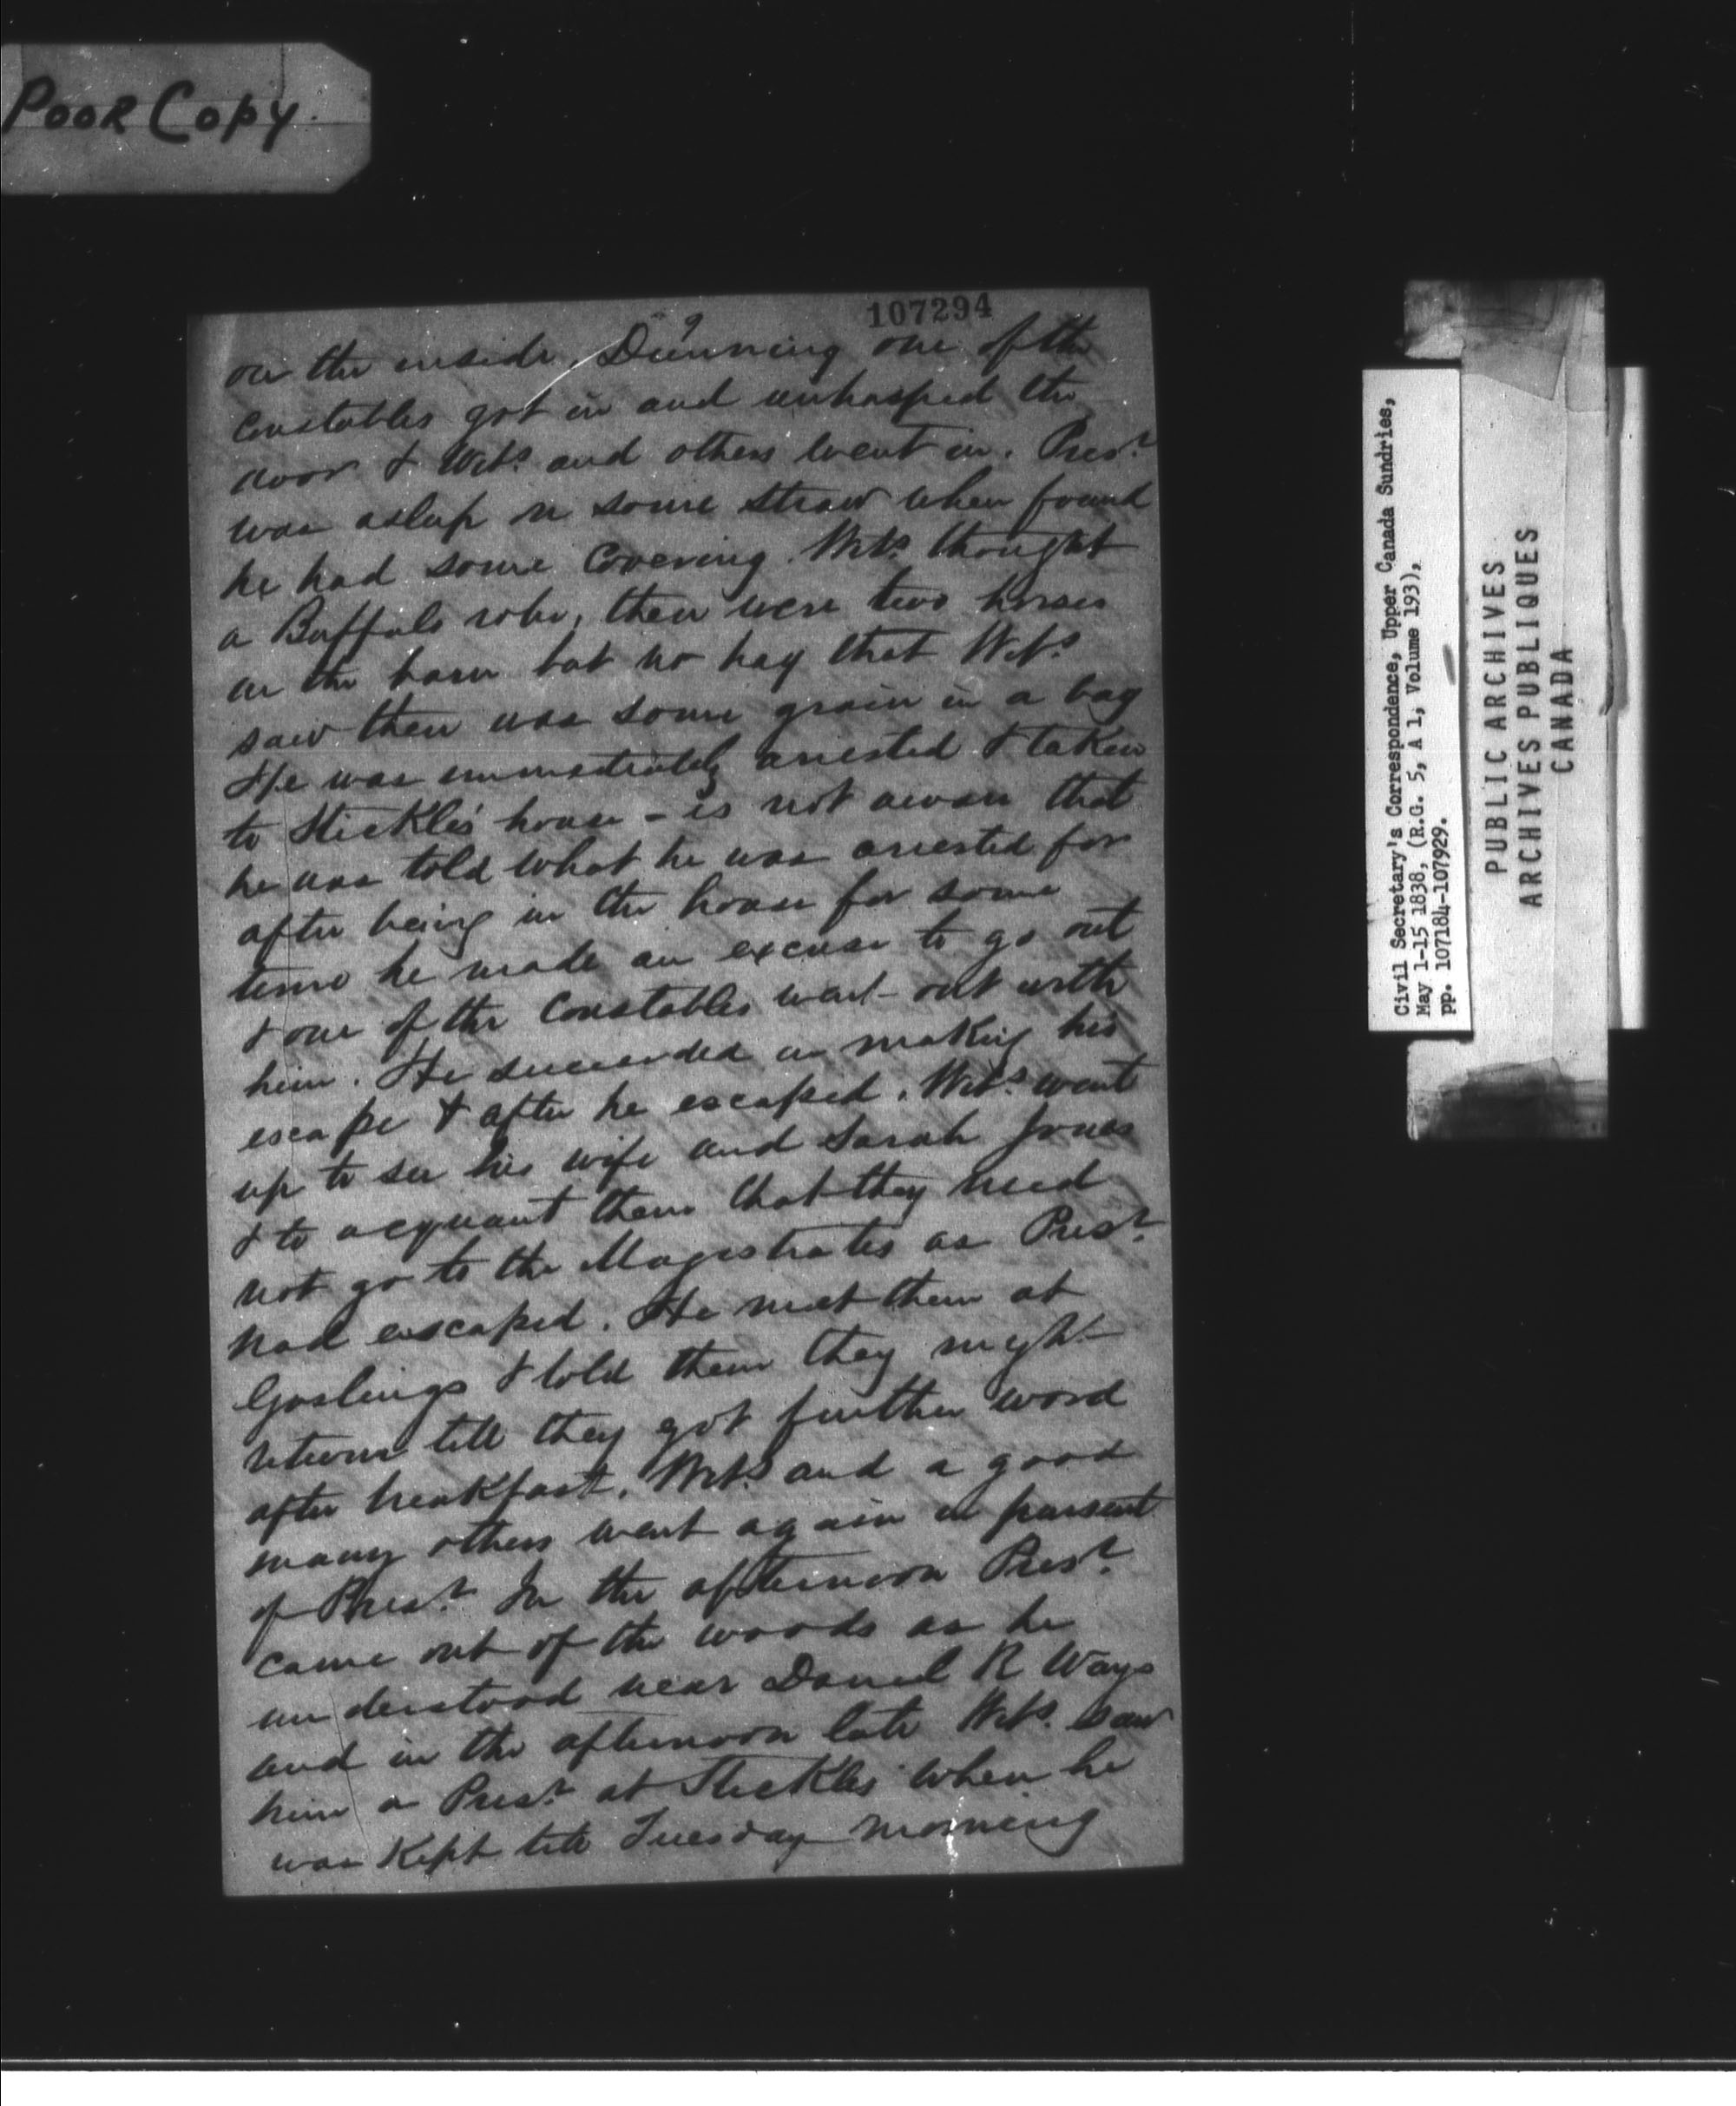 POOR COPY.
107294
9
on the inside. Dunning one of the
Constables got in and unhasped the
door & Wits. and others went in. Prisr.
was asleep in some straw when found
he had some Covering. Wits. thought
a Buffalo robe, there were two horses
in the barn but no hay that Wits.
saw there was some grain in a bag
He was immediately arrested & taken
to Stickles' house - is not aware that
he was told what he was arrested for
after being in the house for some
time he made an excuse to go out
& one of the Constables went out with
him. He succeeded in making his
escape & after he escaped. Wits. went
up to see his wife and Sarah Jonas
& to acquant them that they need
not go to the Magistrates as Prisr.
had escaped. He met them at
Goslings & told them they might
return till they got further word
after breakfast. Wits. and a good
many others went again in pursuit
of Prisr. In the afternoon Prisr.
came out of the woods as he
understood near Daniel R Ways
and in the afternoon late Wits. saw
him a Prisr. at Stickles when he
was Kept till Tuesday morning
Civil Secretary's Correspondence, Upper Canada Sundries,
May 1-15 1838, (R.G. 5, A 1, Volume 193),
pp. 107184-107929.
PUBLIC ARCHIVES
ARCHIVES PUBLIQUES
CANADA